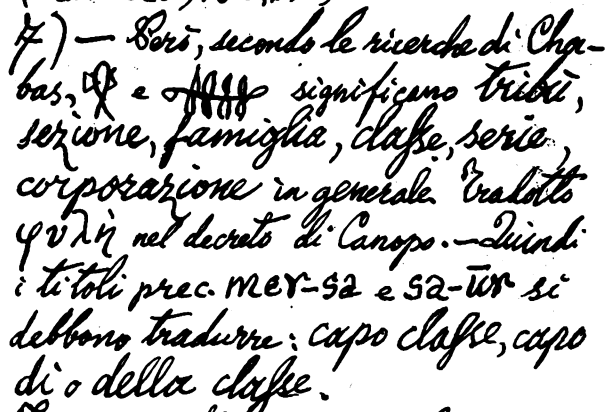 7) — Però, secondo le ricerche di Cha-
bas, e significano tribù,
sezione, famiglia, classe, serie,
corporazione in generale. Tradotto
φυλὴ nel decreto di Canopo. — Quindi
i titoli prec. mer-sa e sa-ūr si
debbono tradurre: capo classe, capo
di o della classe.